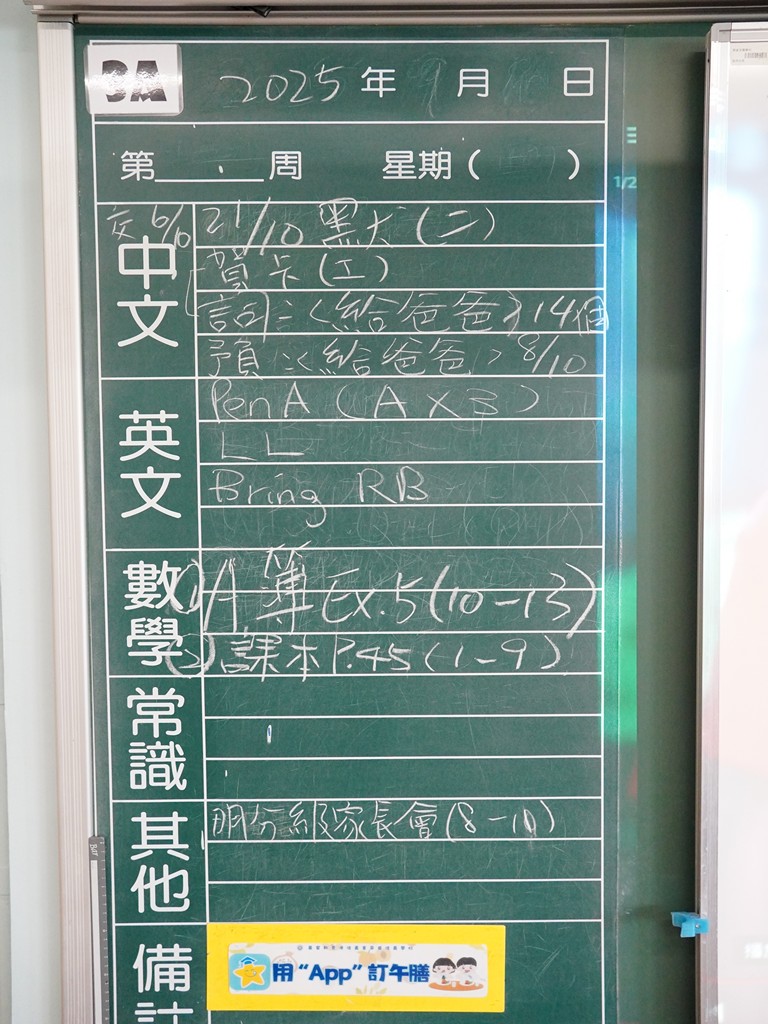 3A
2025年9月 日
第 周 星期( )
中文
交 6/10
21/10 默(二)
賀卡(工)
詞:<給爸爸>14個
預:<給爸爸> 8/10
英文
Pen A (A x 3)
LL
Bring RB
數學
(1) A簿 Ex.5 (10-13)
(2) 課本 P.45 (1-9)
常識
其他
分級家長會 (8-10)
備註
用“App”訂午膳
1/2